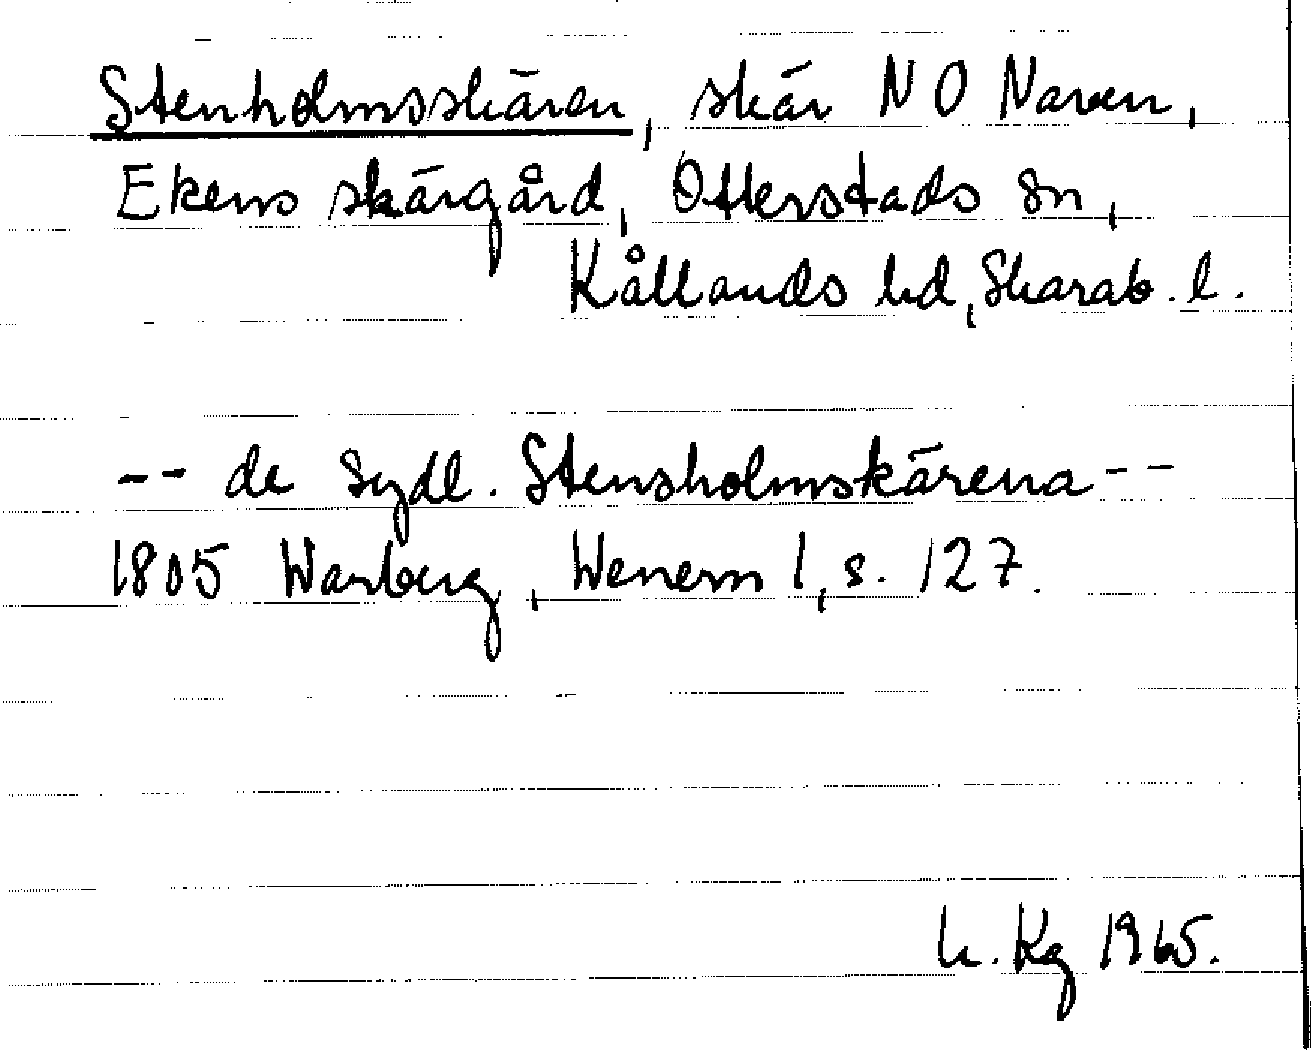 Stenholmsskären, skär NO Naven,
Ekens skärgård, Otterstads sn,
Kållands hd, Skarab. l.
-- de sydl. Stensholmskärena --
1805 Warberg, Wenern 1, s. 127.
h. Kg 1965.